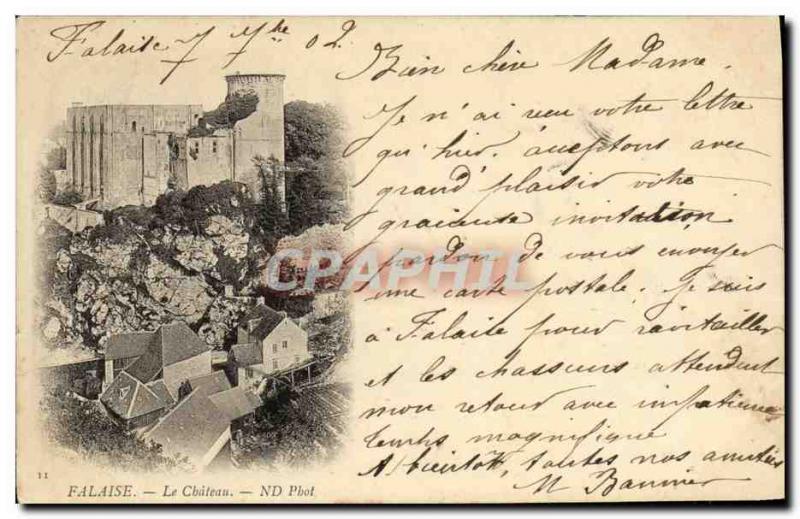 Falaise 7 7bre 02
Bien chère Madame.
Je n'ai reçu votre lettre
qu'hier. acceptons avec
grand plaisir votre
graciente invitation
pardon de vous envoyer
une carte postale. Je suis
à Falaise pour ravitailler
et les chasseurs attendent
mon retour avec impatience
temps magnifique
A bientôt, toutes nos amitiés
M
CPAPHIL
11
FALAISE. — Le Château. — ND Phot